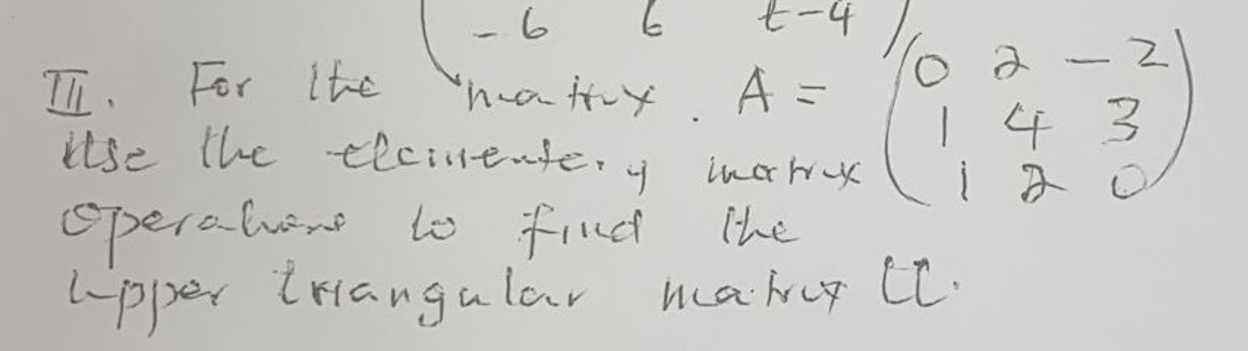 -6 6 t-4
III. For the matrix. A = (0 2 -2
1 4 3
1 2 0)
Use the elementery matrix
operations to find the
upper triangular matrix U.